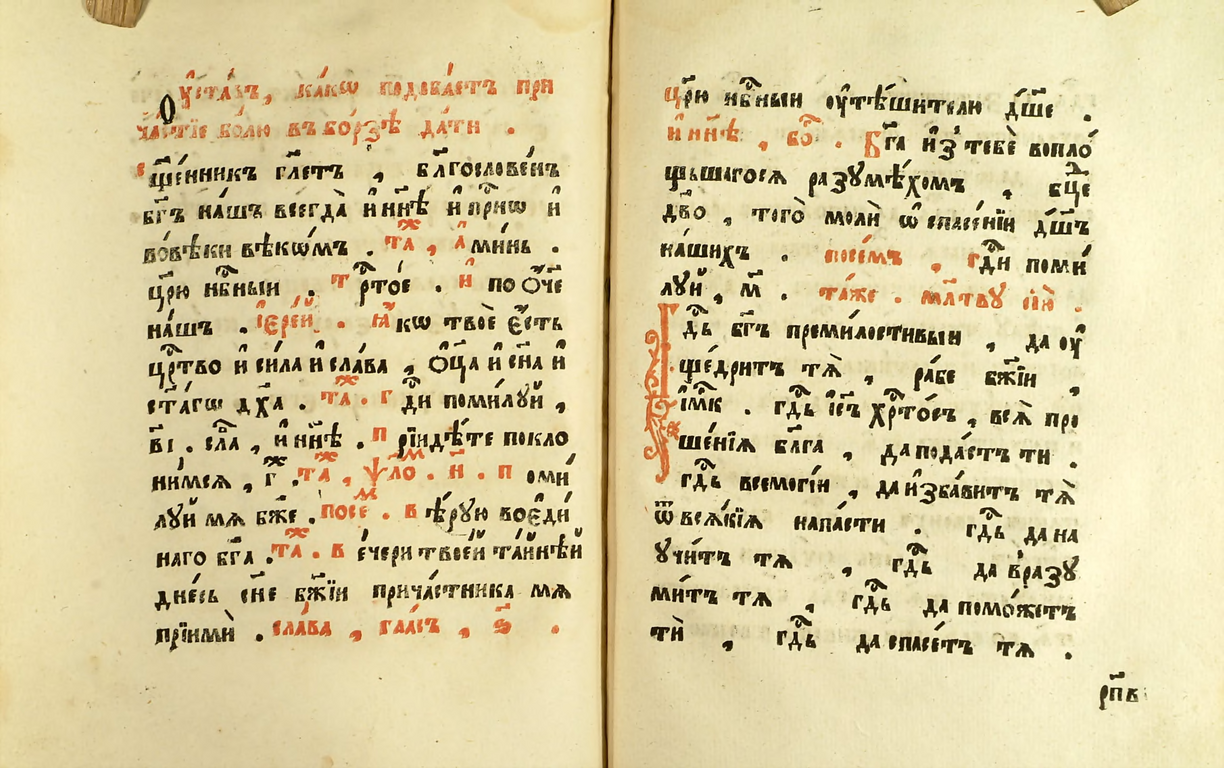 Оу҆ста́въ, ка́кѡ подоба́етъ при
ча́стїе болю въ бо́рзѣ да́ти .
сщ҃е́нникъ гл҃етъ , бл҃гослове́нъ
бг҃ъ на́шъ всегда̀ и҆ нн҃ѣ и҆ при́сѡ и҆
во́вѣки вѣкѡ́мъ . таⷤ , а҆ми́нь .
цр҃ю нб҃ныи . трⷭ҇то́е . и҆ по ѻ҆́ч҃е
на́шъ . і҆ере́й . ꙗ҆́кѡ твоѐ є҆́сть
црⷭ҇тво и҆ си́ла и҆ сла́ва , ѻ҆ц҃а и҆ сн҃а и҆
ст҃а́гѡ дх҃а . таⷤ . гдⷭ҇и поми́луй ,
в҃і . сла̑ , и҆ нн҃ѣ . прїидѣ́те покло
ни́мсѧ , г҃ . таⷤ , ѱало́ⷨ . н҃ . поми́
луй мѧ бж҃е . посеⷨ . вѣ́рую во є҆ди́
наго бг҃а . таⷤ . вечери твоеѝ та́йнѣй
дне́сь сн҃е бж҃їи прича́стника мѧ
прїимѝ . сла́ва , гла́съ , ѕ҃ .
цр҃ю нб҃ныи оу҆тѣ́шителю дш҃е .
и҆ нн҃ѣ , боⷢ҇ . Бг҃а и҆з̾ тебѐ вопло́
щьшагосѧ разумѣ́хомъ , бцⷣе
дв҃о , того̀ молѝ ѡ҆ спасе́нїи дш҃ъ
на́шихъ . посе́мъ , гдⷭ҇и поми́
луй , м҃ . та́же . мл҃тву сїю̀ .
Гдⷭ҇ь бг҃ъ премилостивыи , да оу҆
ще́дритъ тѧ̀ , ра́бе бж҃їи ,
и҆м҃к . гдⷭ҇ь і҆с҃ъ хрⷭ҇то́съ , всѧ̀ про
ше́нїѧ бл҃га́ѧ , да пода́стъ ти .
гдⷭ҇ь всемогі́и , да и҆зба́витъ тѧ̀
ѿ всѧ́кїѧ напа́сти . гдⷭ҇ь да на
учи́тъ тѧ , гдⷭ҇ь да вразу
ми́тъ тѧ , гдⷭ҇ь да помо́жетъ
тѝ , гдⷭ҇ь да спасе́тъ тѧ .
рп҃в